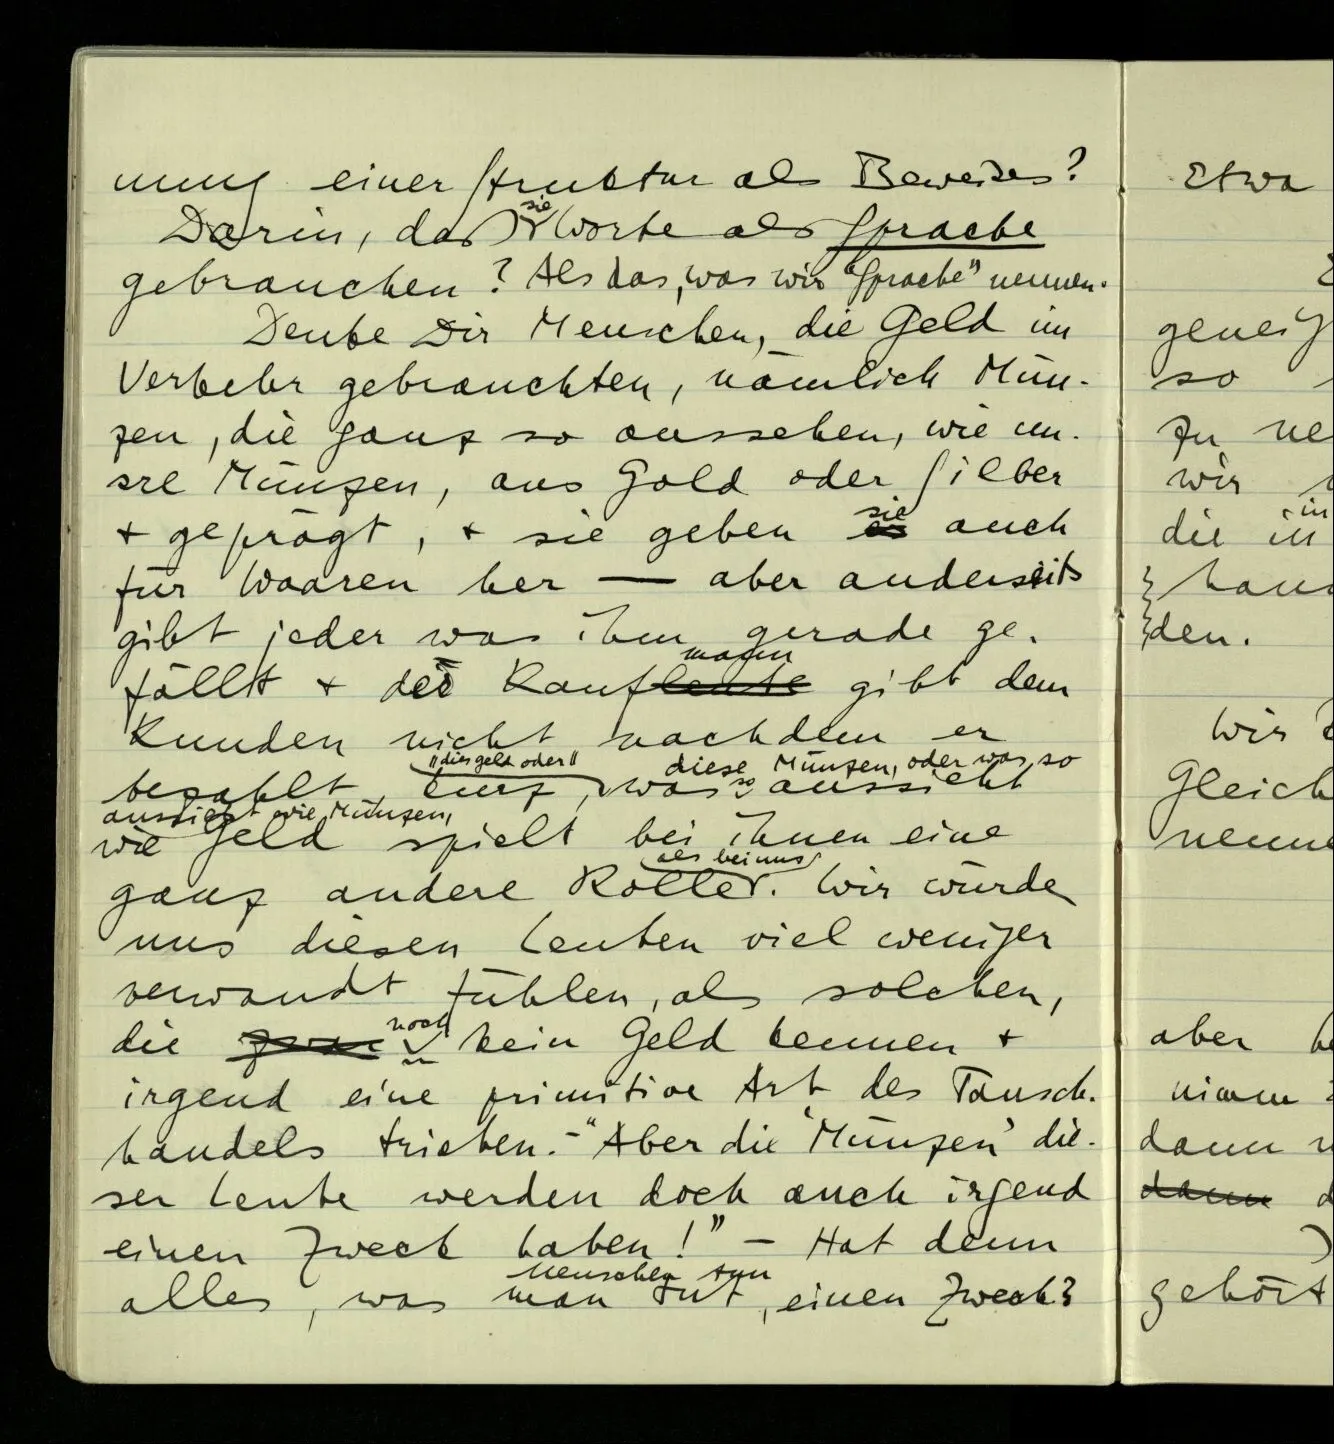 nung einer Struktur als Beweises?
Darin, daß sie Worte als Sprache
gebrauchen? Als das, was wir "Sprache" nennen.
Denke Dir Menschen, die Geld im
Verkehr gebrauchten, nämlich Mün-
zen, die ganz so aussehen, wie un-
sre Münzen, aus Gold oder Silber
+ geprägt, + sie geben sie auch
für Waaren her — aber anderseits
gibt jeder was ihm gerade ge-
fällt + der Kaufmann gibt dem
Kunden nicht nachdem er
bezahlt, kurz, was so aussieht
"dies Geld oder" diese Münzen, oder was so
aussieht wie Münzen,
wie Geld spielt bei ihnen eine
ganz andere Rolle als bei uns. Wir würden
uns diesen Leuten viel weniger
verwandt fühlen, als solchen,
die noch kein Geld kennen +
irgend eine primitive Art des Tausch-
handels trieben. – "Aber die 'Münzen' die-
ser Leute werden doch auch irgend
einen Zweck haben!" – Hat denn
alles, was man tut, einen Zweck?
Menschen tun
Etwa
so
wir
die in
in
den.
Wir
aber
dann
dann
gehört